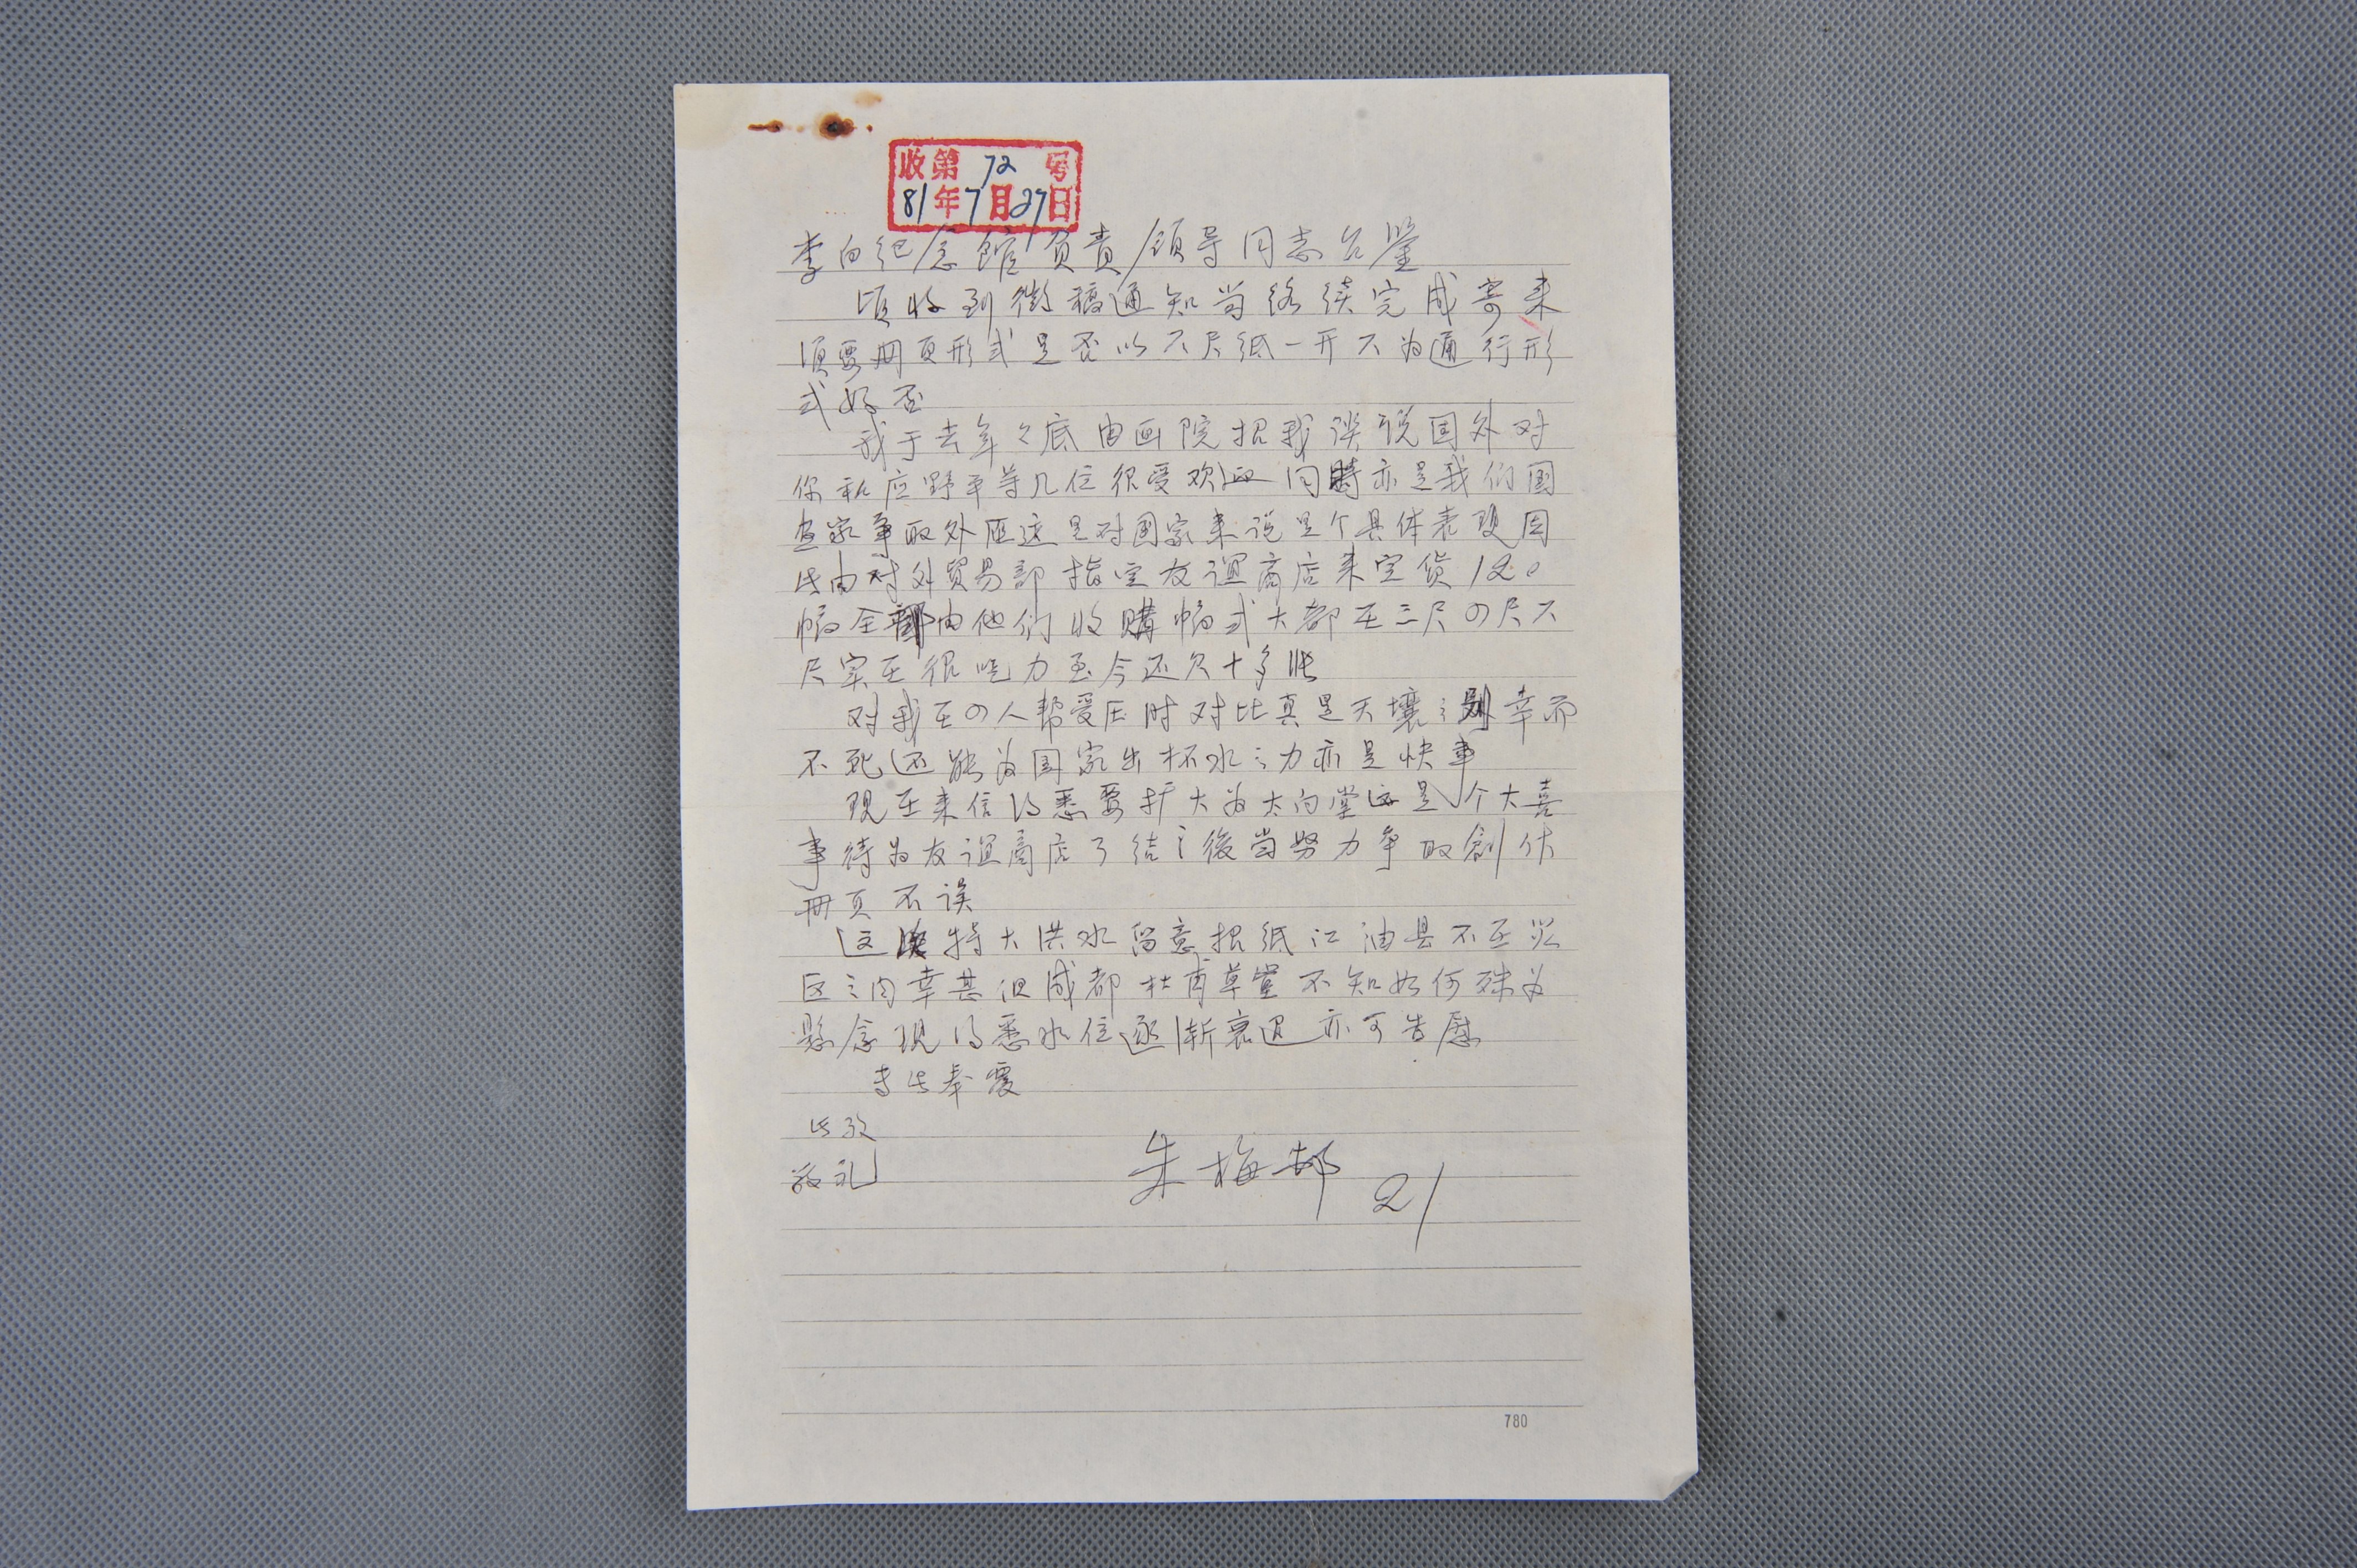 收第72号
81年7月27日
李白纪念馆负责领导同志台鉴
顷收到徵稿通知当络续完成寄来
须要册页形式是否以不尺纸一开不为通行形
式好否
我于去年年底由画院招我谈说国外对
你和应野平等几位很受欢迎同時亦是我们画
家争取外匯这是对国家来说是个具体表现因
此由对外贸易部指定友谊商店来定货120
幅全部由他们收購幅式大都在三尺四尺不
尺实在很吃力至今还欠十多张
对我在四人帮受压时对比真是天壤之别幸而
不死还能为国家出杯水之力亦是快事
现在来信得悉要扩大为太白堂这是个大喜
事待为友谊商店了结之後当努力争取創作
册页不误
这次特大洪水留意报纸江油县不在災
区之内幸甚但成都杜甫草堂不知如何殊为
懸念现得悉水位逐渐衰退亦可告慰
专此奉覆
此致
敬礼
朱梅邨
21
780